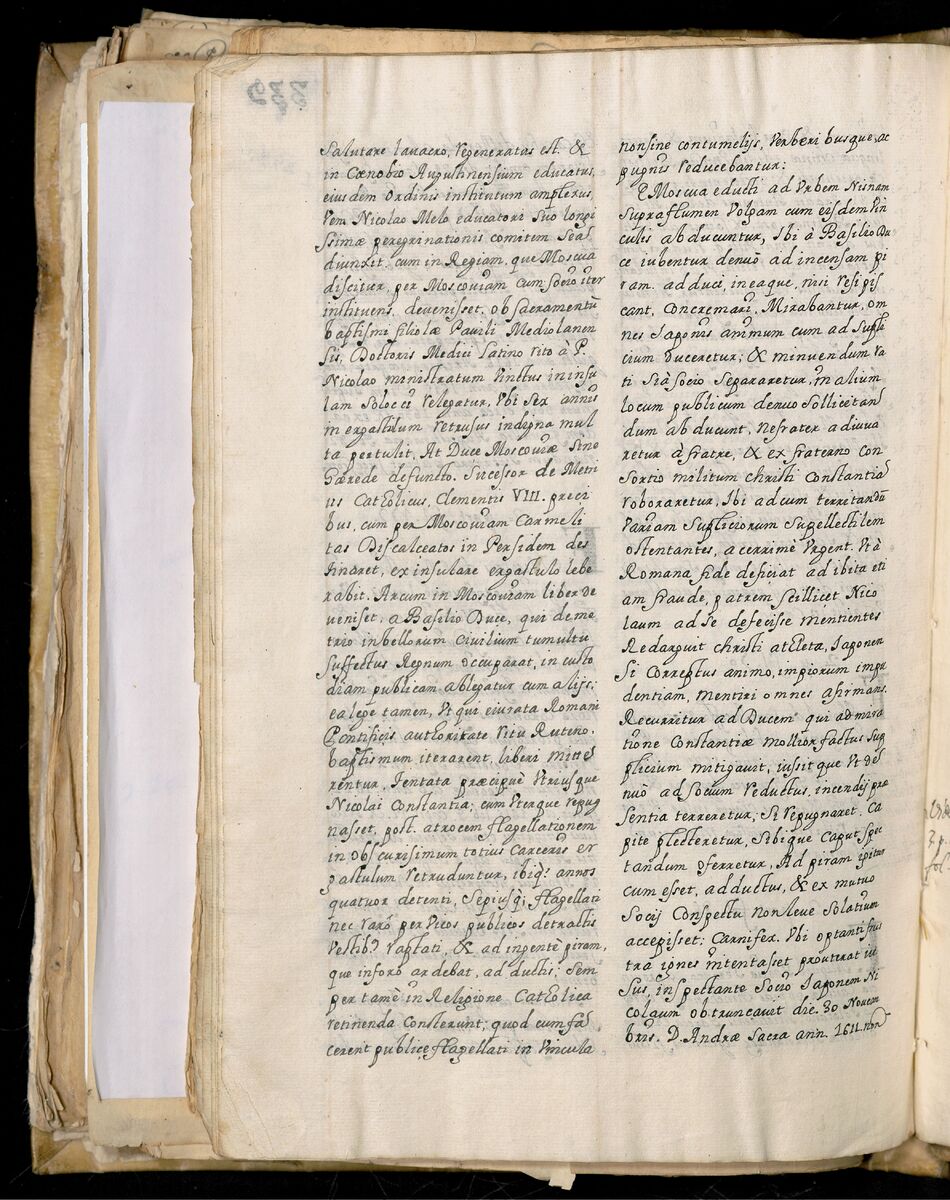 salutare lauacro, regeneratus est. &
in Cænobio Augustinensium educatus,
eiusdem Ordinis institutum amplexus,
Ven. Nicolao Melo educatori suo longi
ssimæ peregrinationis comitem sead
diunxit: cum in Regiam, que Moscua
discitur, per Moscouiam cum socio iter
instituens, devenisset, ob sacramentũ
baptismi filiolæ Pauili Mediolanen
sis, Doctoris Medici latino rito à P.
Nicolao ministratum vinctus in insu
lam relegatur, Vbi sex annis
in ergastulum retrusus indigna mul
ta pertulit, At Duce Moscouiæ sine
hærede defuncto. Sucessor de Metri
us Catholicus, Clementis VIII. preci
bus, cum per Moscouiam Carmeli
tas Discalceatos in Persidem des
tinaret, ex insulare ergastulo libe
rabit. At cum in Moscouiam liber de
ueniset, a Basilio Duce, qui deme
trio inbellorum Ciuilium tumultu
suffectus Regnum occuparat, in custo
diam publicam ablegatur cum alijs;
ea lege tamen, Vt qui eiurata Romani
Pontificis authoritate ritu Ruteno.
baptismum iterarent, liberi mitte
rentur, Tentata præcipuè Vtriusque
Nicolai Constantia; cum Vterque repug
nasset, post. atrocem flagellationem
in obscurisimum totius Carceris er
gastulum retruduntur, ibiq; annos
quatuor detenti, Sepiusq; flagellati
nec raró per Vicos publicos detractis
Vestibꝰ raptati, & ad ingentẽ piram,
que inforo ardebat, ad ducti; Sem
per tamẽ in Religione Catholica
retinenda Consterunt; quod cum fa
cerent publicè flagellati in Vincula
non sine contumelijs, Verberi busque, ac
pugnis reducebantur:
E Moscua educti ad Vrbem Nisnam
supra flumen Volgam cum eisdem Vin
culis abducuntur, Ibi à Basilio Du
ce iubentur denuò ad incensam pi
ram. adduci, ineaque, nisi resipis
cant, Concremari, Mirabantur, om
nes Iaponis animum cum ad supli
cium duceretur; & minuendum ra
ti si à socio separaretur, in alium
locum publicum denuo sollicitan
dum abducunt, nefrater adiuua
retur à fratre, & ex fraterno con
sortio militum christi Constantia
roboraretur, Ibi adcum territandũ
Variam supliciorum supellectilem
ostentantes, acerrimè Vrgent. Vt à
Romana fide deficiat adibita eti
am fraude, patrem scillicet Nico
laum ad se defecisse mentientes
Redarguit christi athleta, Iaponen
si Correptus animo, impiorum impu
dentiam, mentiri omnes afirmans.
Recurritur ad Ducem qui admira
tione Constantiæ mollior factus sup
plicium mitigauit, iussit que Vt de
nuò ad socium reductus, incendij præ
sentia terreretur; Si repugnaret. Ca
pite plecteretur, sibique caput, spec
tandum oferretur, Ad piram
cum esset, adductus, & ex mutuo
socij Conspectu non leue solatium
accepisset; Carnifex. Vbi optanti
tra ignes intentasset prouterat iu
sus, inspectante socio Iaponem Ni
colaum obtruncauit die. 30 Nouem
bris. D. Andræ Sacra ann. 1611. non